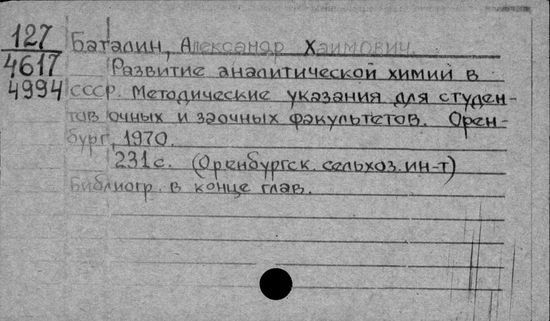 127
4617
4994
Баталин, Александр Хаимович.
Развитие аналитической химии в
СССР. Методические указания для студен-
тов очных и заочных факультетов. Орен-
бург, 1970.
231с. (Оренбургск. сельхоз. ин-т)
Библиогр. в конце глав.